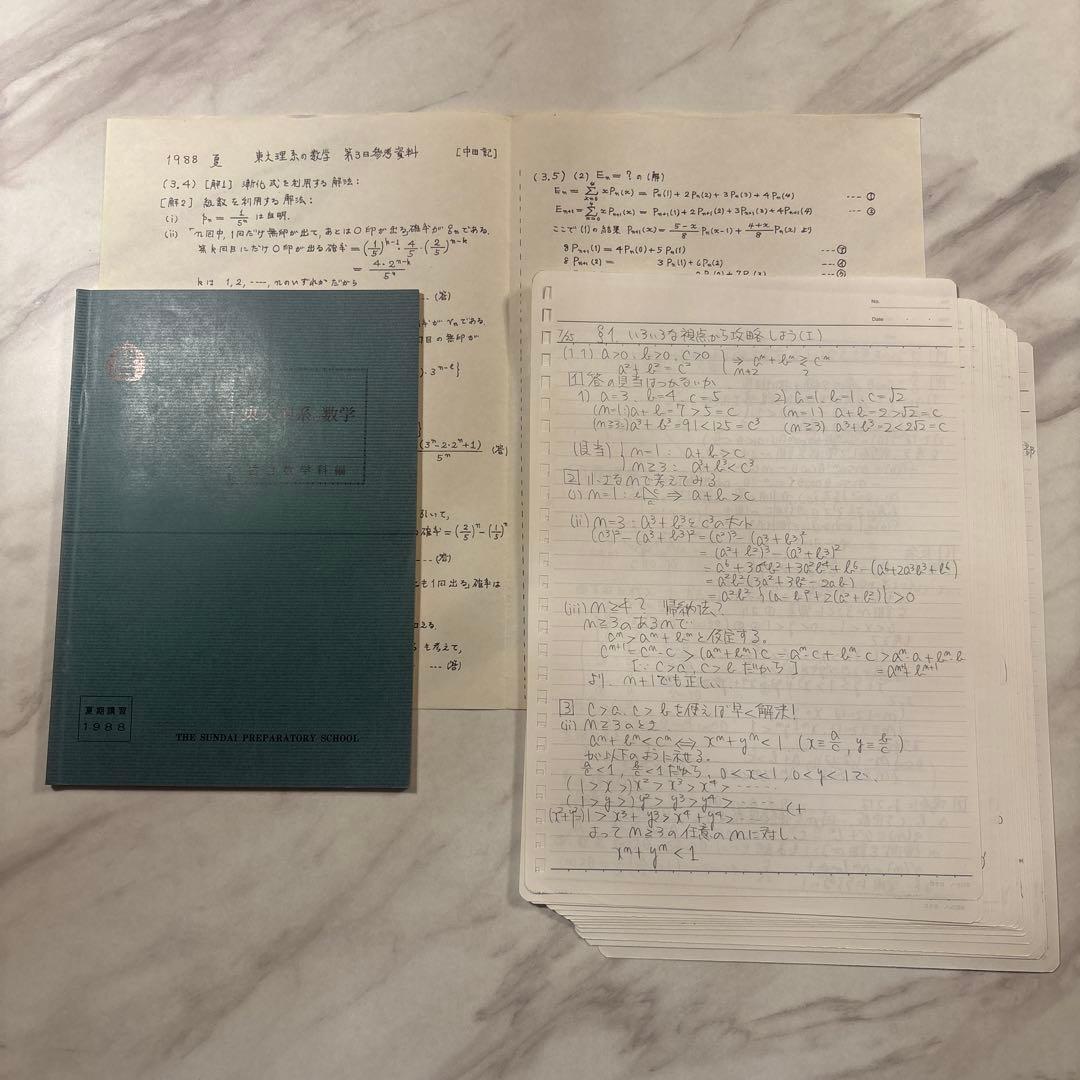 1988 夏 東大理系の数学 第3日参考資料 [中田記]
(3.4) [解1] 漸化式を利用する解法:
[解2] 級数を利用する解法:
(i) pₙ = 1/5ⁿ は自明.
(ii) 「n回中, 1回だけ無印が出て, あとは○印が出る」確率が qₙ である.
第k回目にだけ○印が出る確率 = (1/5)^(k-1)・4/5・(2/5)^(n-k)
= 4・2^(n-k)/5ⁿ
kは 1, 2, ----, n のいずれかだから
(答)
rₙ である.
目の無印が
・3^(n-k)}
(3ⁿ-2・2ⁿ+1)/5ⁿ (答)
確率 = (2/5)ⁿ - (1/5)ⁿ
--- (答)
も1回出る」確率は
も考えて,
--- (答)
(3.5) (2) Eₙ = ? の (解)
Eₙ = Σ[x=0→4] xPₙ(x) = Pₙ(1) + 2Pₙ(2) + 3Pₙ(3) + 4Pₙ(4) --- ①
Eₙ₊₁ = Σ[x=0→4] xPₙ₊₁(x) = Pₙ₊₁(1) + 2Pₙ₊₁(2) + 3Pₙ₊₁(3) + 4Pₙ₊₁(4) --- ②
ここで (1) の結果 Pₙ₊₁(x) = (5-x)/8 Pₙ(x-1) + (4+x)/8 Pₙ(x) より
8Pₙ₊₁(1) = 4Pₙ(0) + 5Pₙ(1)
8Pₙ₊₁(2) = 3Pₙ(1) + 6Pₙ(2)
東大理系 数学
数学科編
夏期講習
1988
THE SUNDAI PREPARATORY SCHOOL
No.
Date
7/25 §1. いろいろな視点から攻略しよう(I)
(1.1) a>0, b>0, c>0 a²+b²=c² } ⇒ aⁿ+bⁿ ≷ cⁿ
n≠2 ?
[1] 答の見当はつかないか
1) a=3, b=4, c=5 2) a=1, b=1, c=√2
(n=1) a+b=7>5=c (n=1) a+b=2>√2=c
(n=3) a³+b³=91<125=c³ (n=3) a³+b³=2<2√2=c
(見当) { n=1: a+b>c
n≥3: a³+b³<c³
[2] 小さなnで考えてみる
(i) n=1: ⇒ a+b>c
(ii) n=3: a³+b³とc³の大小
(c³)²-(a³+b³)²=(c²)³-(a³+b³)²
=(a²+b²)³-(a³+b³)²
=a⁶+3a⁴b²+3a²b⁴+b⁶-(a⁶+2a³b³+b⁶)
=a²b²(3a²+3b²-2ab)
=a²b²{(a-b)²+2(a²+b²)}>0
(iii) n≥4で 帰納法?
n≥3のあるnで
cⁿ>aⁿ+bⁿと仮定する。
cⁿ⁺¹=cⁿ・c>(aⁿ+bⁿ)c=aⁿ・c+bⁿ・c>aⁿ・a+bⁿ・b
[∵ c>a, c>b だから] =aⁿ⁺¹+bⁿ⁺¹
より、n+1でも正しい
[3] c>a, c>bを使えば早く解決!
(ii) n≥3のとき
aⁿ+bⁿ<cⁿ⇔xⁿ+yⁿ<1 (x=a/c, y=b/c)
が以下のように示せる。
a/c<1, b/c<1だから、0<x<1, 0<y<1で、
(1>x>)x²>x³>x⁴>……
(1>y>)y²>y³>y⁴>…… (+
(x²+y²=)1>x³+y³>x⁴+y⁴>……
よってn≥3の任意のnに対し、
xⁿ+yⁿ<1